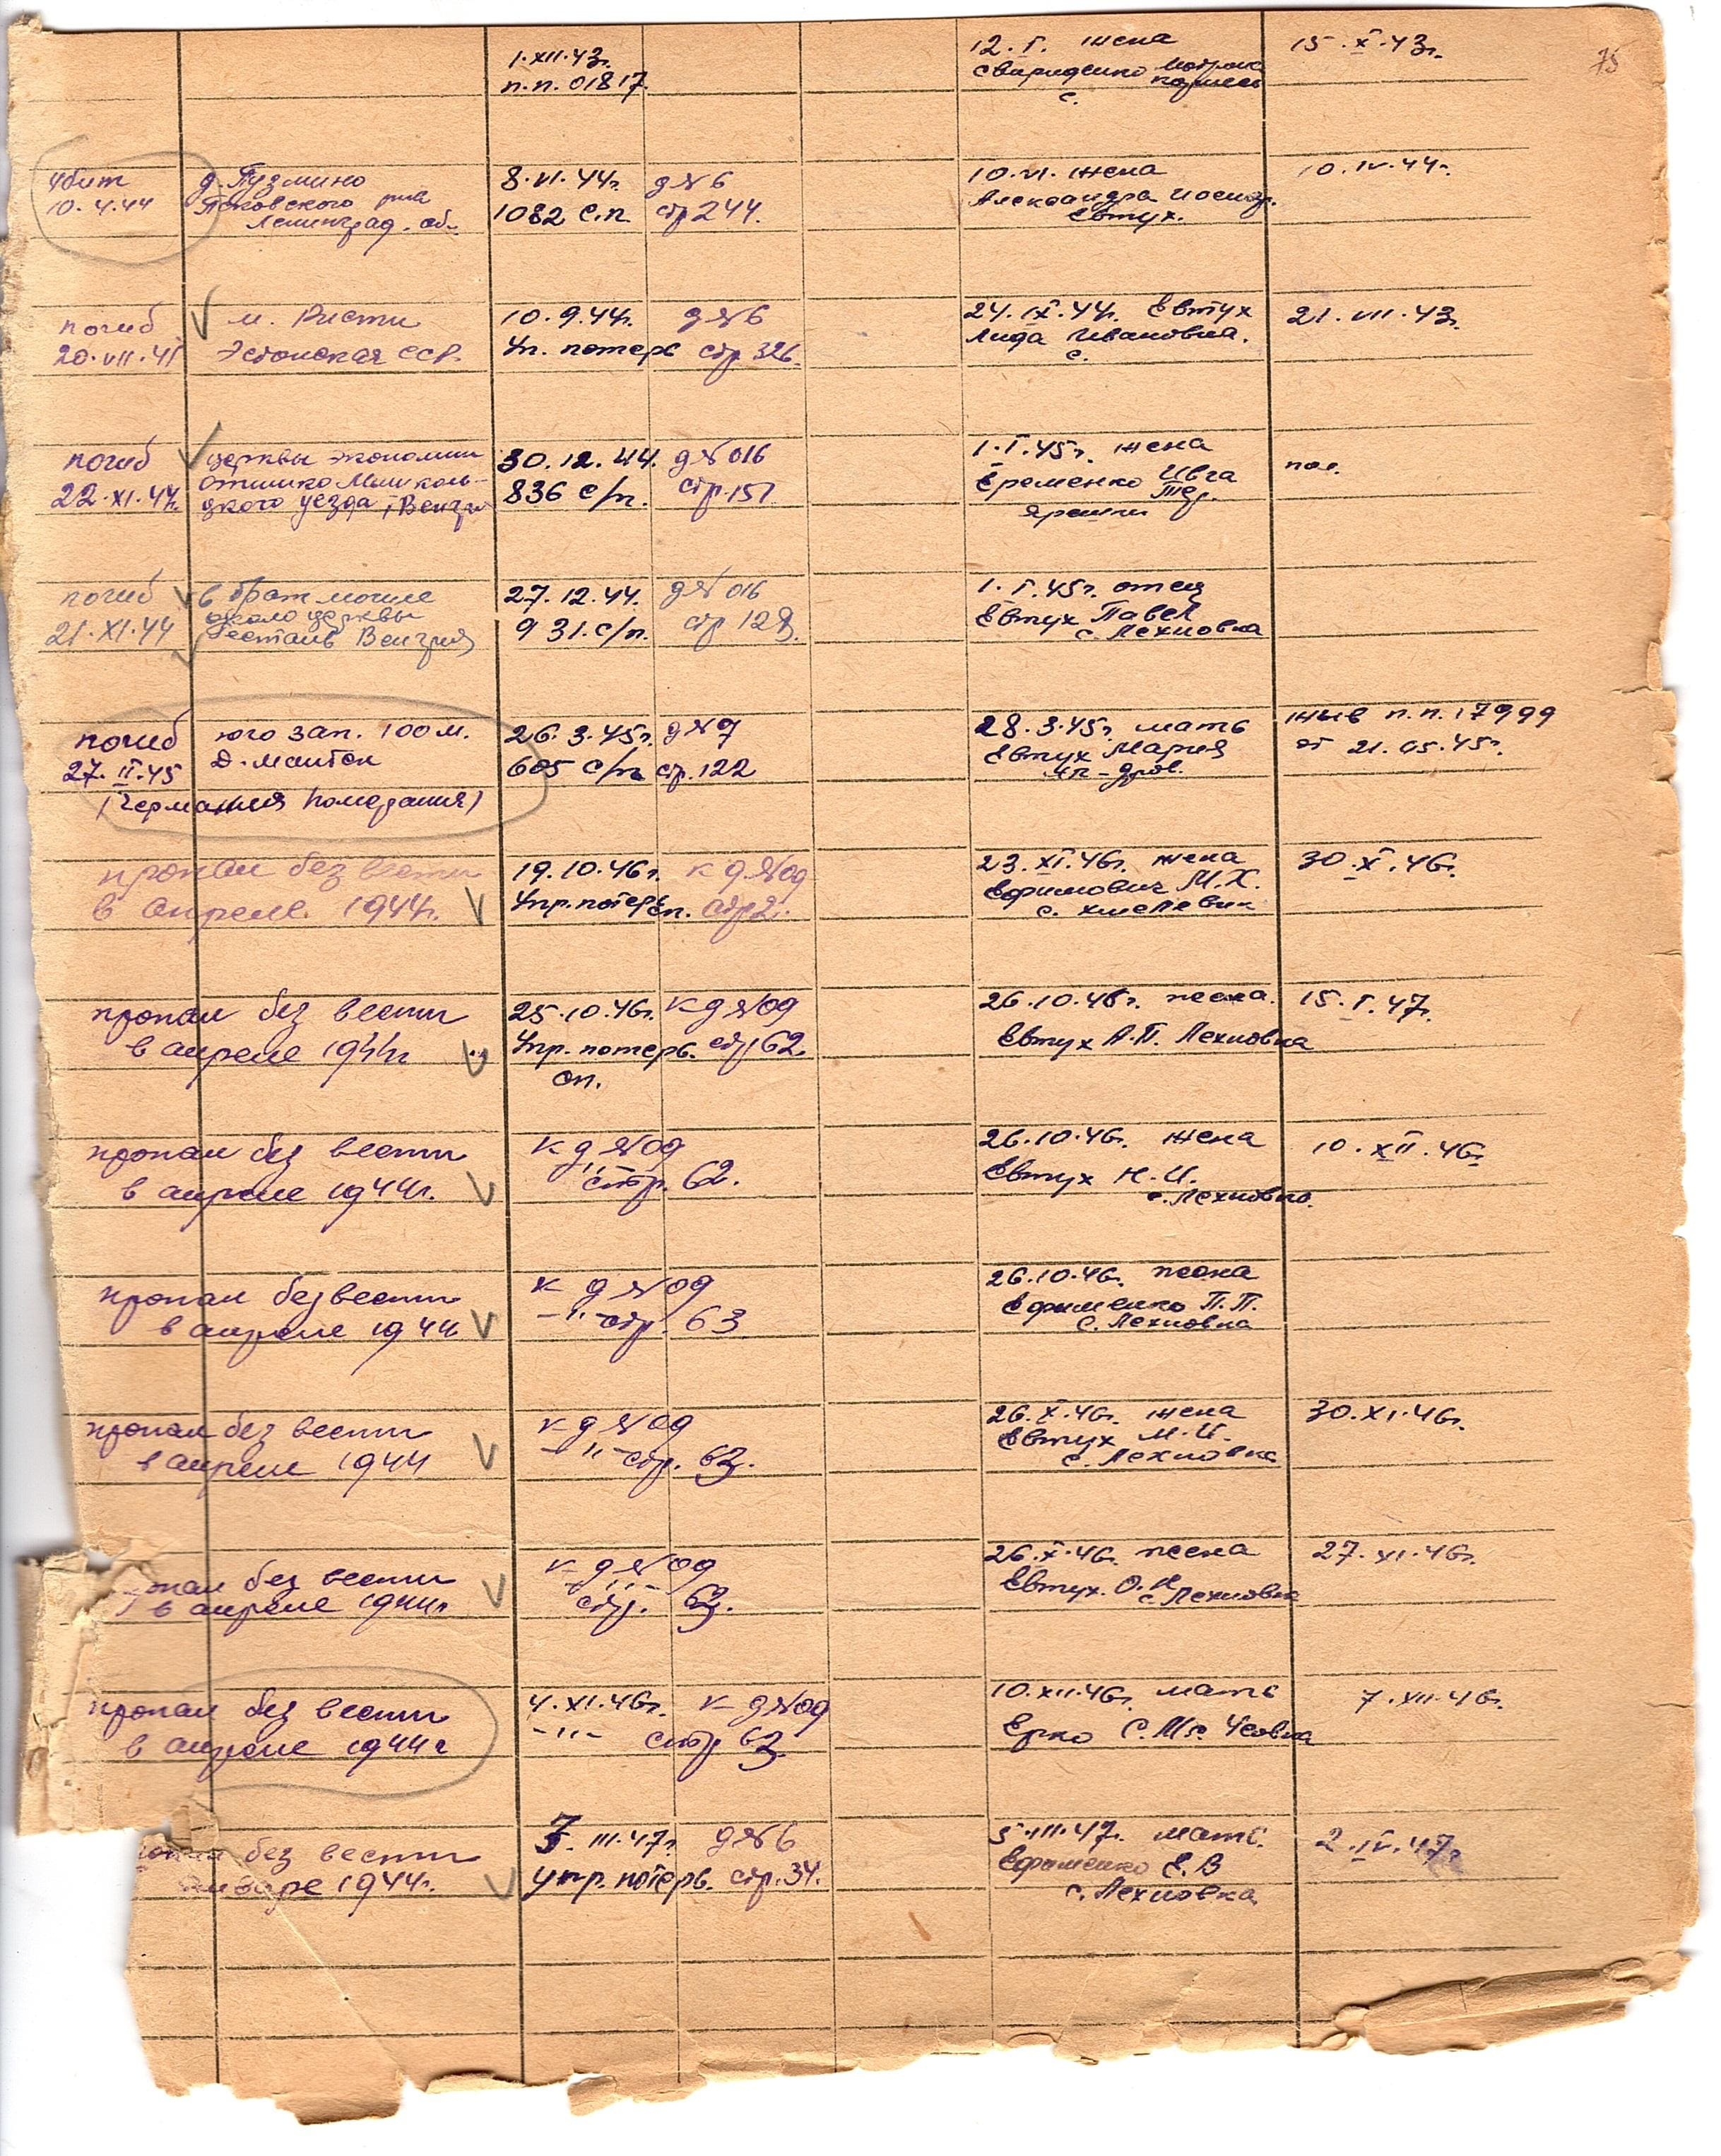 75
1.XII.43г.
п.п. 01817.
12.I. жена
Свириденко
с.
15.X.43г.
убит
10.4.44
д. Пузмино
Псковского р-на
Ленинград. об.
8.VI.44г.
1082 с.п.
д№6
стр 244.
10.VI. жена
Александра Иосиф.
Евтух.
10.IV.44г.
погиб
20.VII.41
м. Ристи
Эстонская ССР.
10.9.44г.
Уп. потерь
д№6
стр 326.
24.IX.44г. Евтух
Лида Ивановна.
с.
21.VII.43г.
погиб
22.XI.44г.
церквы экономии
кого уезда, Венгри
30.12.44.
836 с/п.
д№016
стр.151
1.I.45г. жена
Еременко Ивга
Ярешки
погиб
21.XI.44
в брат могиле
около церквы
Венгрия
27.12.44.
931.с/п.
д№016
стр 128.
1.I.45г. отец
Евтух Павел
с. Лехновка
погиб
27.II.45
юго зап. 100 м.
Д. Мантон
(Германия Померания)
26.3.45г.
605 с/п
д№7
стр.122
28.3.45г. мать
Евтух Мария
Ал-дров.
жив п.п. 17999
от 21.05.45г.
пропал без вести
в апреле. 1944г.
19.10.46г.
Упр.потерь сп.
к д.№09
стр 2.
23.XI.46г. жена
Ефимович М.Х.
с. Хмелевик
30.X.46г.
пропал без вести
в апреле 1944г
25.10.46г.
Упр. потерь.
сп.
к д№09
стр 62.
26.10.46г. жена.
Евтух А.П. Лехновка
15.I.47г.
пропал без вести
в апреле 1944г.
к д№09
-"- стр. 62.
26.10.46г. жена
Евтух Н.И.
с. Лехновка.
10.XII.46г.
пропал без вести
в апреле 1944
к д№09
-"- стр. 63
26.10.46г. жена
Ефименко П.П.
с. Лехновка
пропал без вести
в апреле 1944
к д№09
-"- стр. 63.
26.X.46г. жена
Евтух М.И.
с. Лехновка
30.XI.46г.
опал без вести
в апреле 1944г
к д№09
-"-
стр. 63.
26.X.46г. жена
Евтух. О.И
с. Лехновка
27.XI.46г.
пропал без вести
в апреле 1944г
4.XI.46г.
-"-
к д№09
стр 63.
10.XII.46г. мать
Ерко С.М.
7.XII.46г.
без вести
январе 1944г.
III.47г.
упр. потерь.
д№6
стр.34.
5.III.47г. мать.
Ефименко Е.В
с. Лехновка
2.IV.47г.